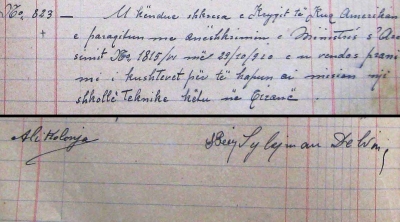 No. 823 — U këndue shkresa e Krygit të Kuq Amerikan
e paraqitun me anëshkrimin e Ministris s' Arë
simit No 1815/VI mës 29/10/920 e u vendos prani
mi i kushtevet për të hapun ai mision një
shkollë teknike këtu në Tiranë.
Ali Kolonja
Sylejman Delvina